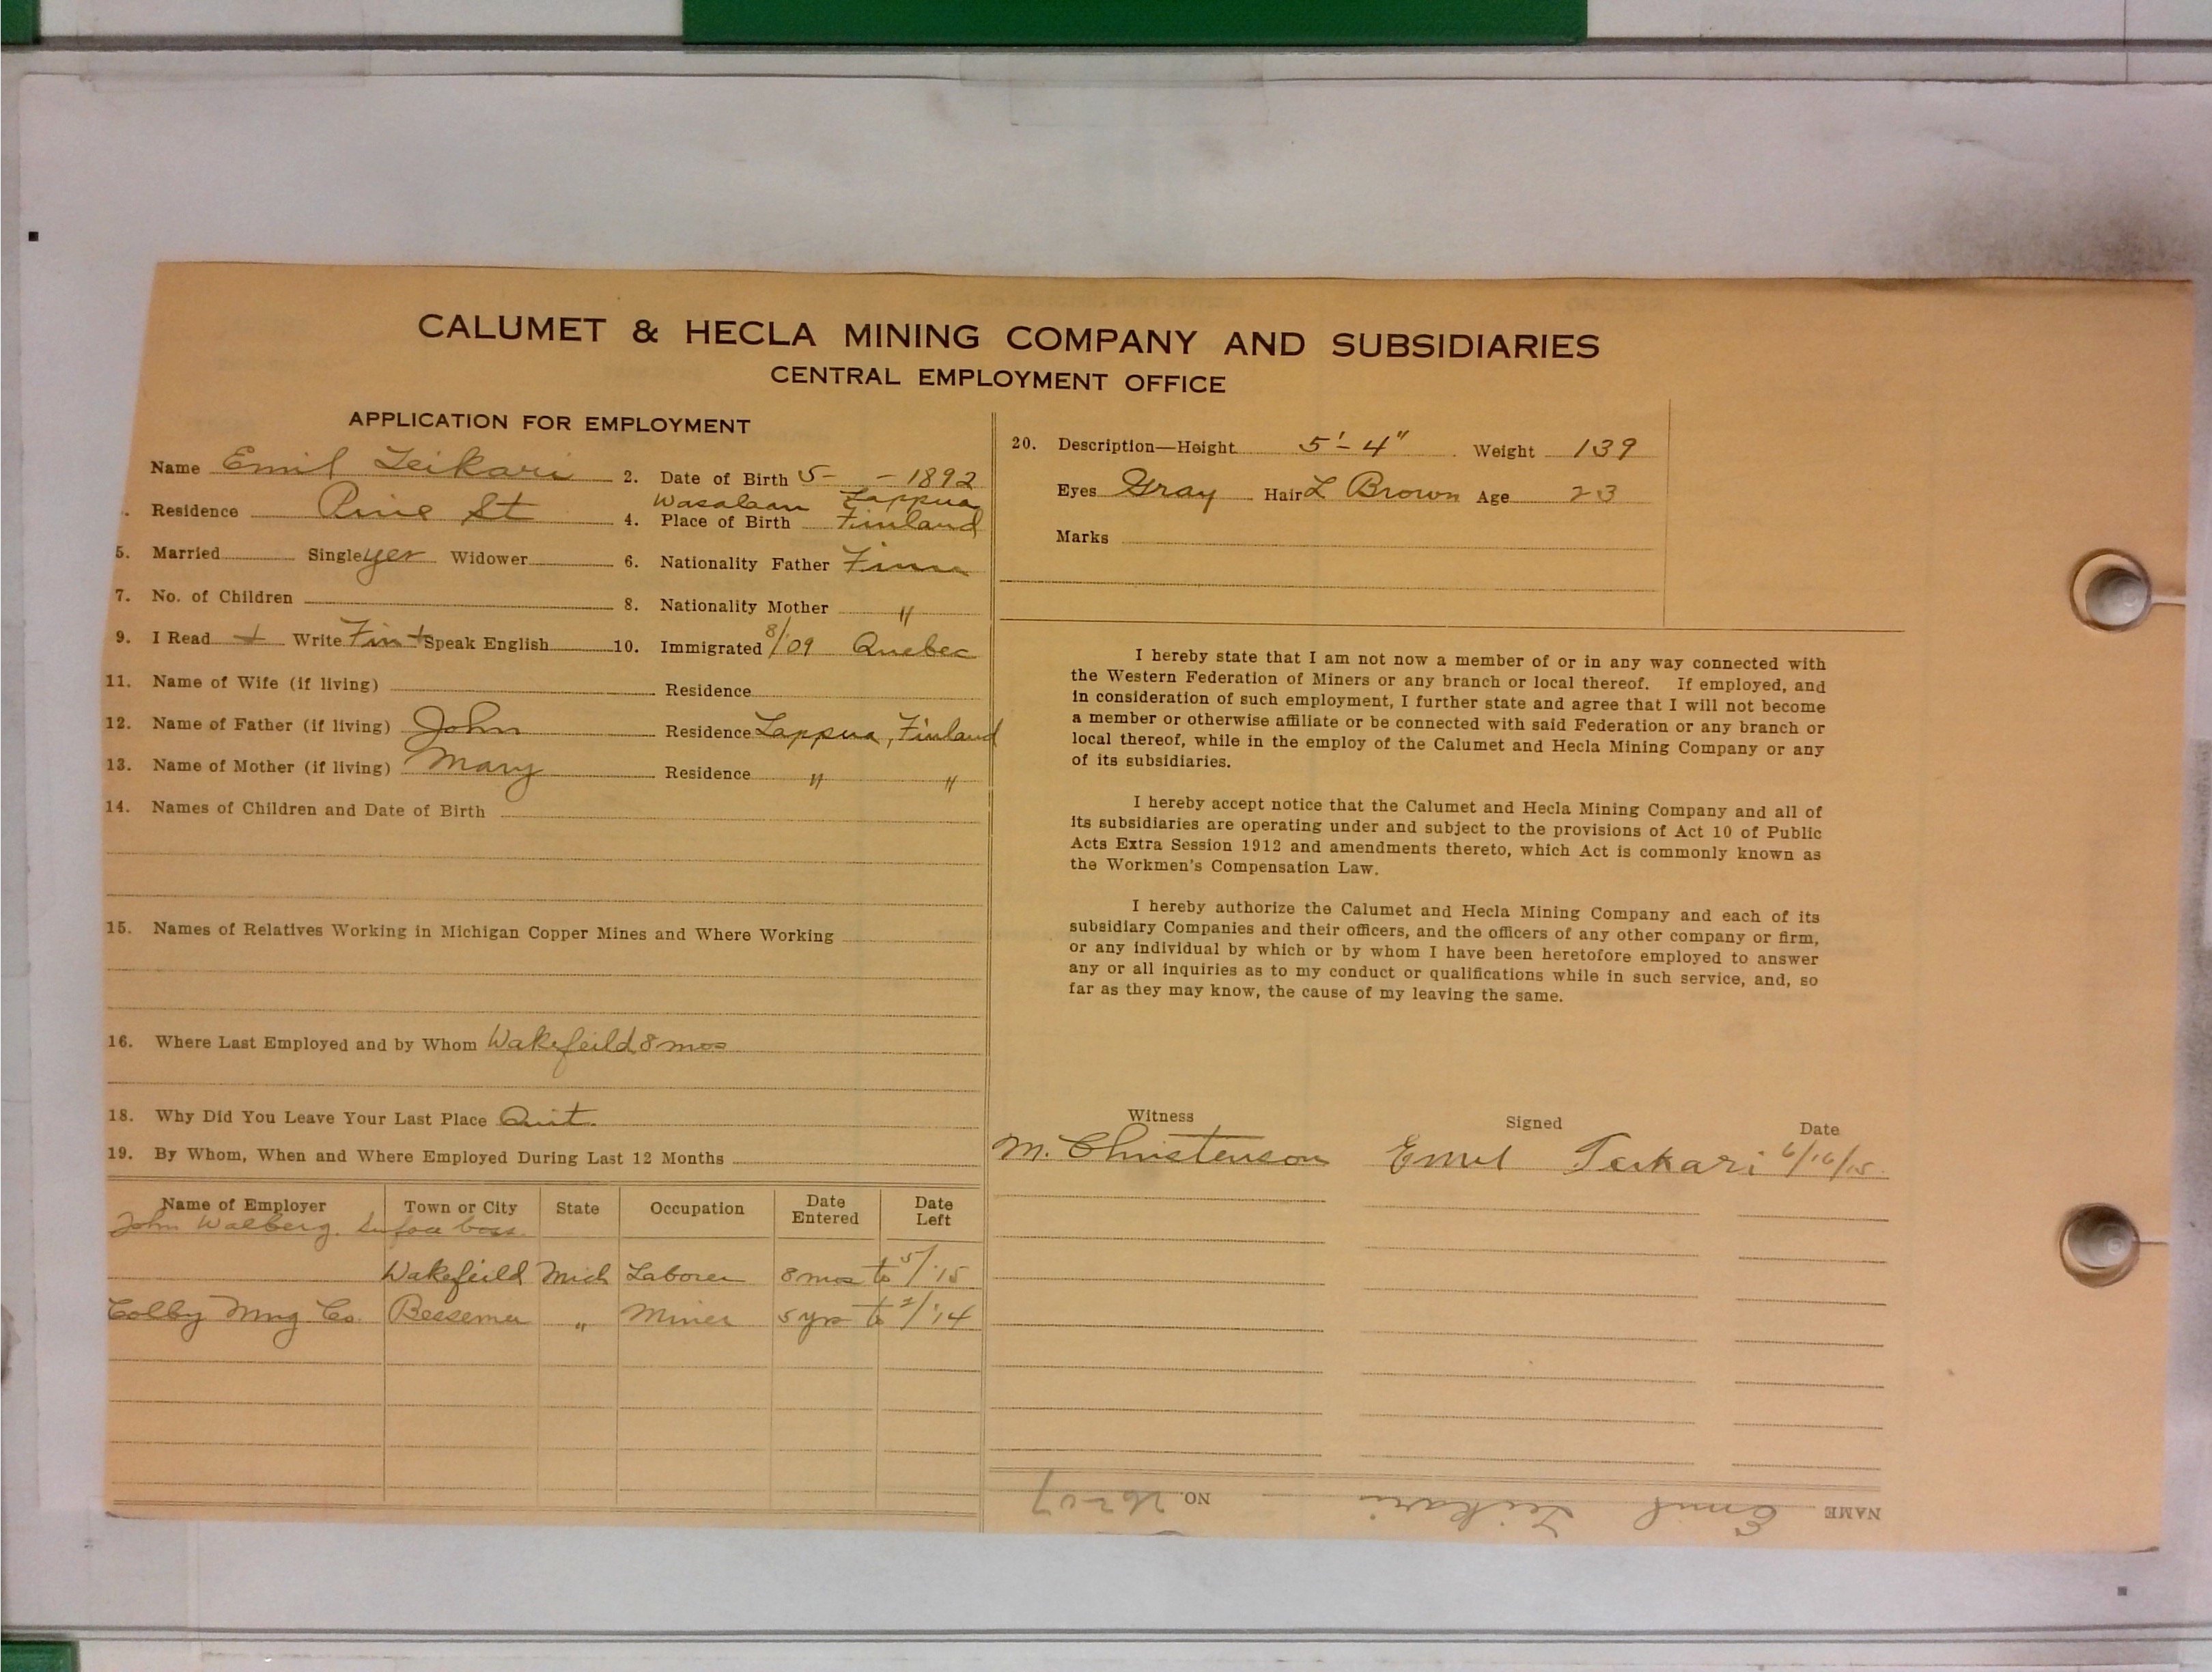 CALUMET & HECLA MINING COMPANY AND SUBSIDIARIES
CENTRAL EMPLOYMENT OFFICE
APPLICATION FOR EMPLOYMENT
Name Emil Teikari 2. Date of Birth 5- - 1892
Wasalaan Lappua
. Residence Pine St 4. Place of Birth Finland
5. Married Single yes Widower 6. Nationality Father Finn
7. No. of Children 8. Nationality Mother "
9. I Read + Write Fin + Speak English 10. Immigrated 8/09 Quebec
11. Name of Wife (if living) Residence
12. Name of Father (if living) John Residence Lappua, Finland
13. Name of Mother (if living) Mary Residence " "
14. Names of Children and Date of Birth
15. Names of Relatives Working in Michigan Copper Mines and Where Working
16. Where Last Employed and by Whom Wakefeild 8 mos
18. Why Did You Leave Your Last Place Quit.
19. By Whom, When and Where Employed During Last 12 Months
Name of Employer Town or City State Occupation Date Entered Date Left
John Walberg. Surface boss.
Wakefeild Mich Laborer 8 mos to 5/'15
Colby Mng Co. Bessemer " Miner 5 yrs to 2/'14
20. Description—Height 5'-4" Weight 139
Eyes Gray Hair L Brown Age 23
Marks
I hereby state that I am not now a member of or in any way connected with
the Western Federation of Miners or any branch or local thereof. If employed, and
in consideration of such employment, I further state and agree that I will not become
a member or otherwise affiliate or be connected with said Federation or any branch or
local thereof, while in the employ of the Calumet and Hecla Mining Company or any
of its subsidiaries.
I hereby accept notice that the Calumet and Hecla Mining Company and all of
its subsidiaries are operating under and subject to the provisions of Act 10 of Public
Acts Extra Session 1912 and amendments thereto, which Act is commonly known as
the Workmen's Compensation Law.
I hereby authorize the Calumet and Hecla Mining Company and each of its
subsidiary Companies and their officers, and the officers of any other company or firm,
or any individual by which or by whom I have been heretofore employed to answer
any or all inquiries as to my conduct or qualifications while in such service, and, so
far as they may know, the cause of my leaving the same.
Witness Signed Date
M. Christenson Emil Teikari 6/16/15
NAME Emil Teikari NO. 26207